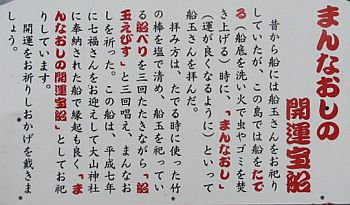 まんなおしの
開運宝船
昔から船には船玉さんをお祀り
していたが、この島では船をたで
る(船底を洗い火で虫やゴミを焚
き上げる)時に、「まんなおし」
(運が良くなるように)といって
船玉さんを拝んだ。
拝み方は、たでる時に使った竹
の棒を塩で清め、船玉を祀ってい
る船べりを三回たたきながら「船
玉えびす」と三回唱え、まんなお
しを祈った。この船は、平成七年
に七福神をお迎えして大山神社
に奉納された船で縁起も良く「ま
んなおしの開運宝船」としてお祀
りしています。
開運をお祈りしおかげを戴きま
しょう。